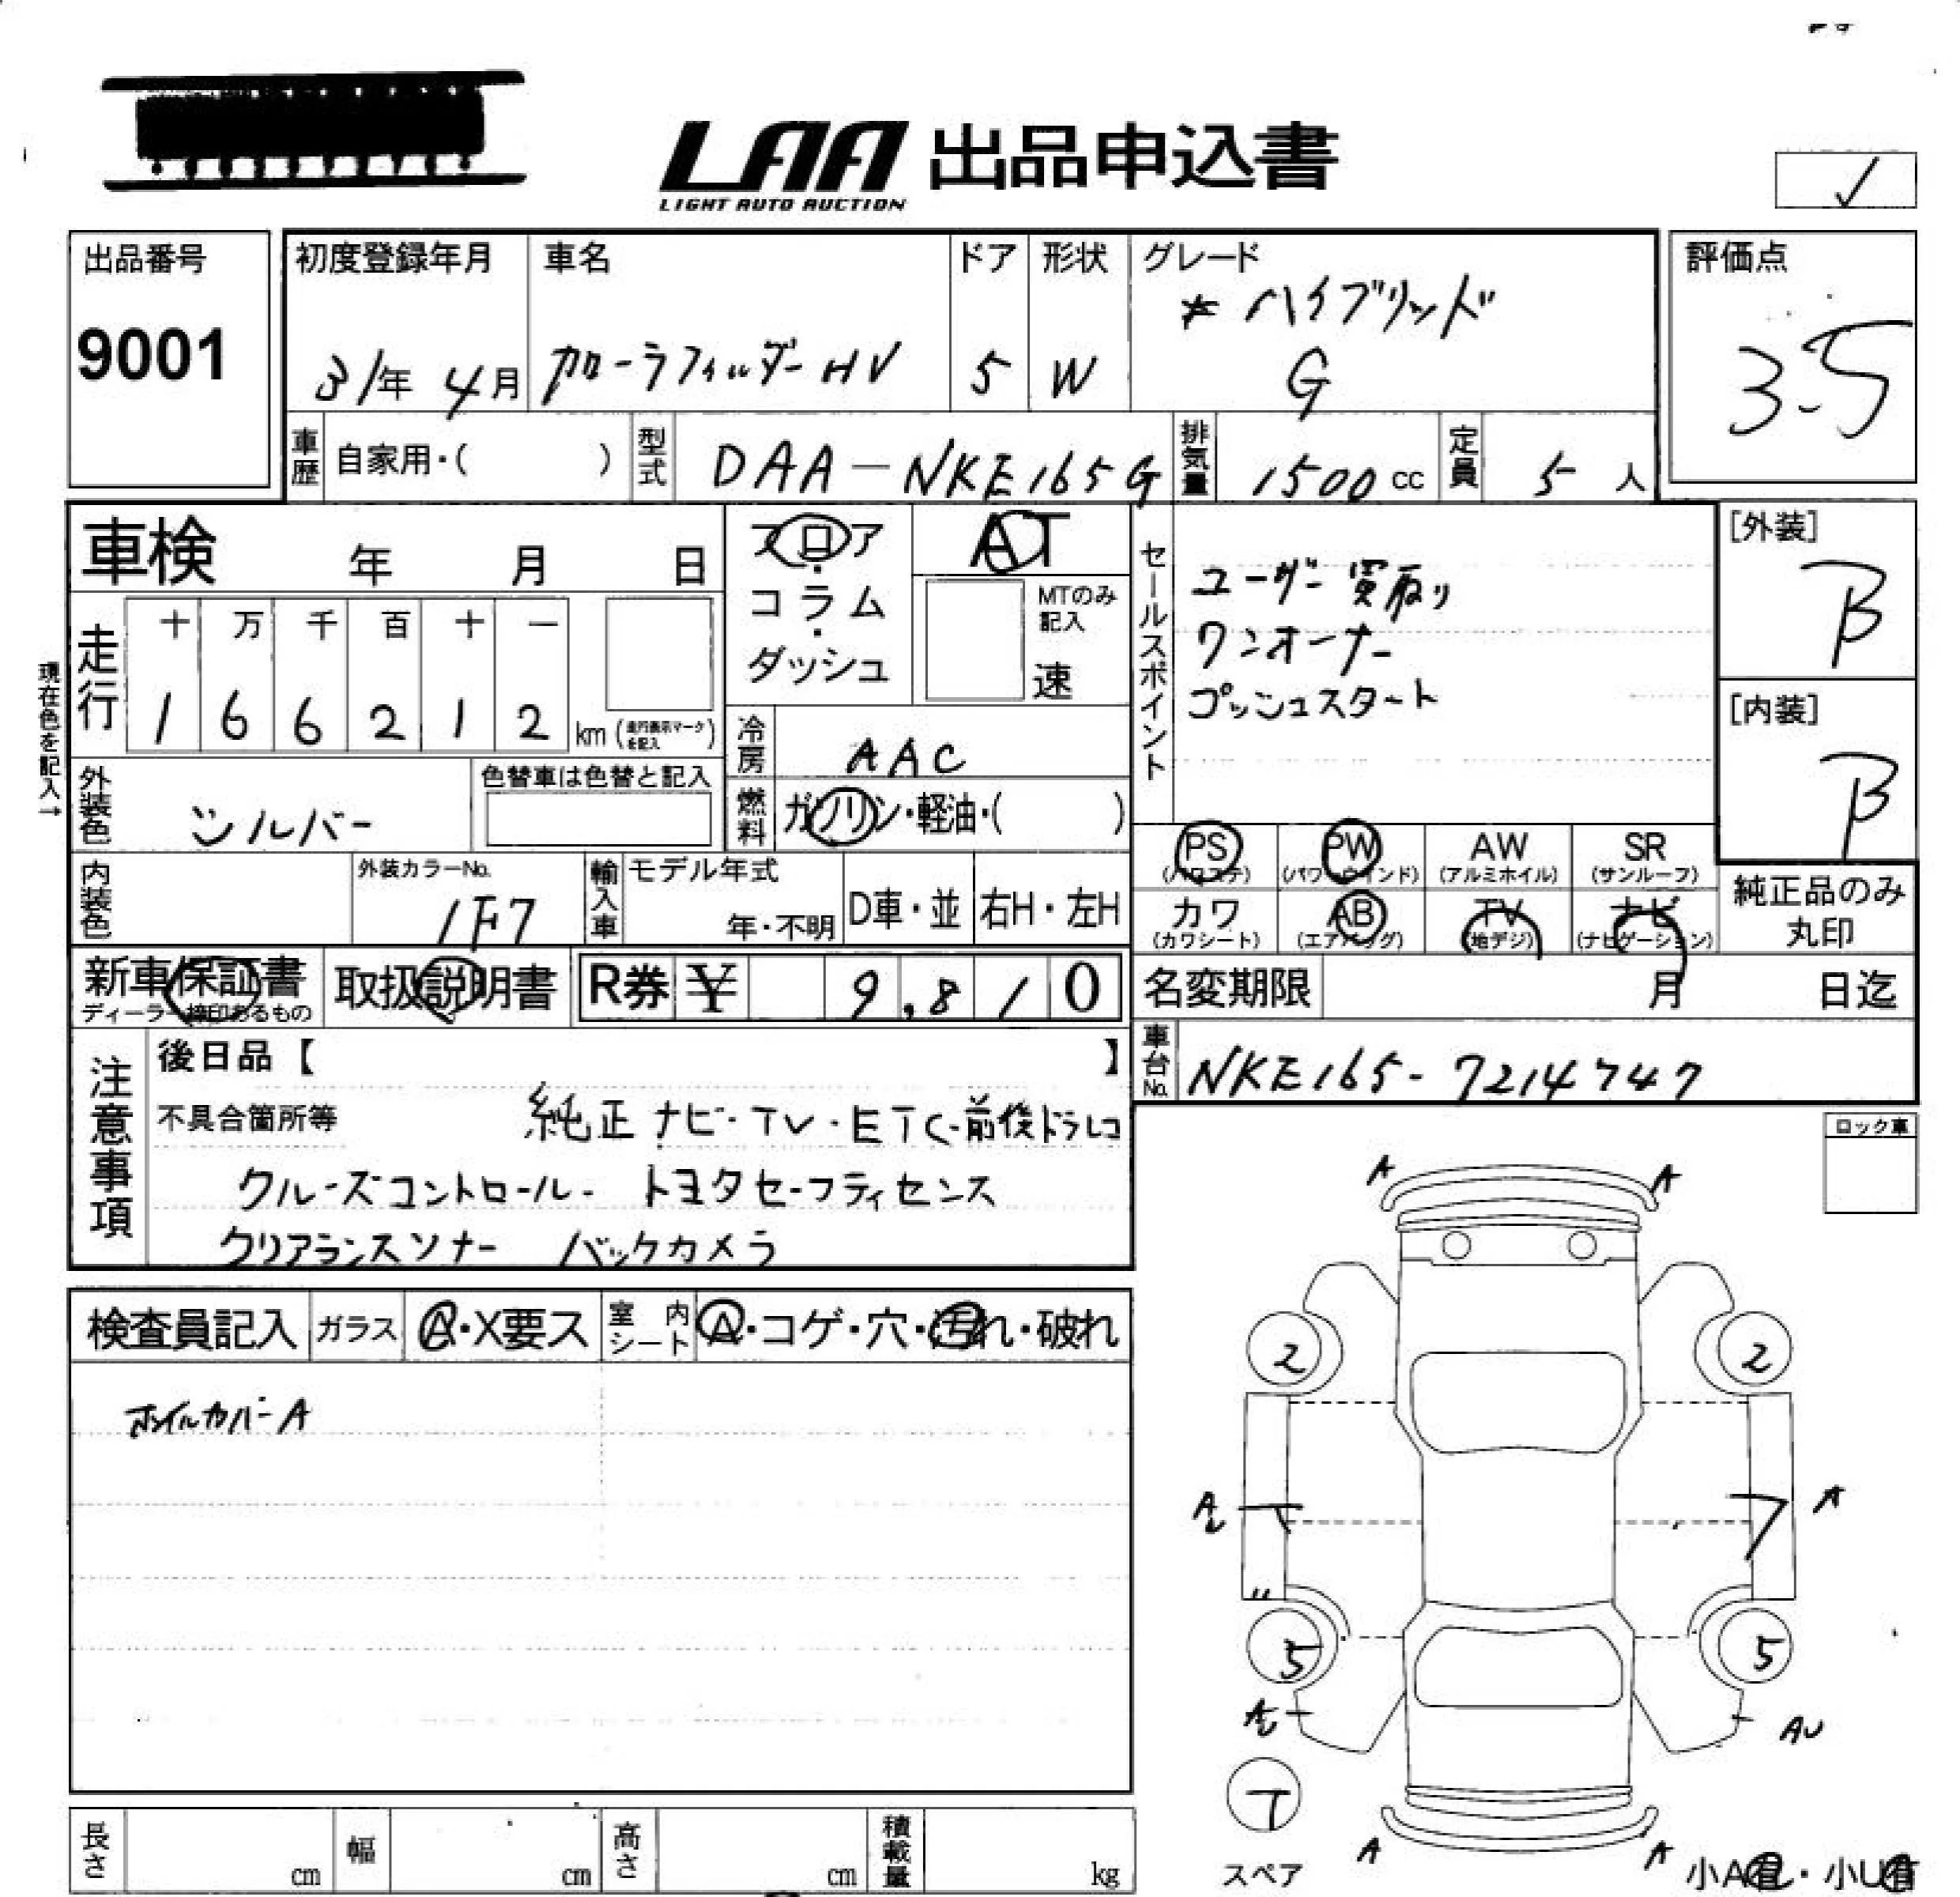 LAA 出品申込書
LIGHT AUTO AUCTION
✓
出品番号
9001
初度登録年月
31年 4月
車名
カローラフィールダーHV
ドア
5
形状
W
グレード
* ハイブリッド
G
評価点
3.5
車歴
自家用・( )
型式
DAA-NKE165G
排気量
1500 cc
定員
5 人
車検 年 月 日
現在色を記入→
走行
十 万 千 百 十 一
1 6 6 2 1 2 km (走行表示マークを記入)
フロア
・
コラム
・
ダッシュ
AT
MTのみ
記入
速
冷房
AAC
燃料
ガソリン・軽油・( )
セールスポイント
ユーザー買取り
ワンオーナー
プッシュスタート
[外装]
B
[内装]
B
外装色
シルバー
色替車は色替と記入
内装色
外装カラーNo.
1F7
輸入車
モデル年式
年・不明
D車・並
右H・左H
PS
(パワステ)
PW
(パワーウインド)
AW
(アルミホイル)
SR
(サンルーフ)
カワ
(カワシート)
AB
(エアバッグ)
TV
(地デジ)
ナビ
(ナビゲーション)
純正品のみ
丸印
新車保証書
取扱説明書
R券 ¥ 9,810
名変期限 月 日迄
車台No.
NKE165-7214747
注意事項
後日品【 】
不具合箇所等
純正ナビ・TV・ETC・前後ドラレコ
クルーズコントロール・ トヨタセーフティセンス
クリアランスソナー バックカメラ
ロック車
検査員記入
ガラス
A・X要ス
室内シート
A・コゲ・穴・汚れ・破れ
ホイルカバーA
A
A
2
2
A
5
5
AU
T
スペア
A
A
長さ cm
幅 cm
高さ cm
積載量 kg
小A有・小U有